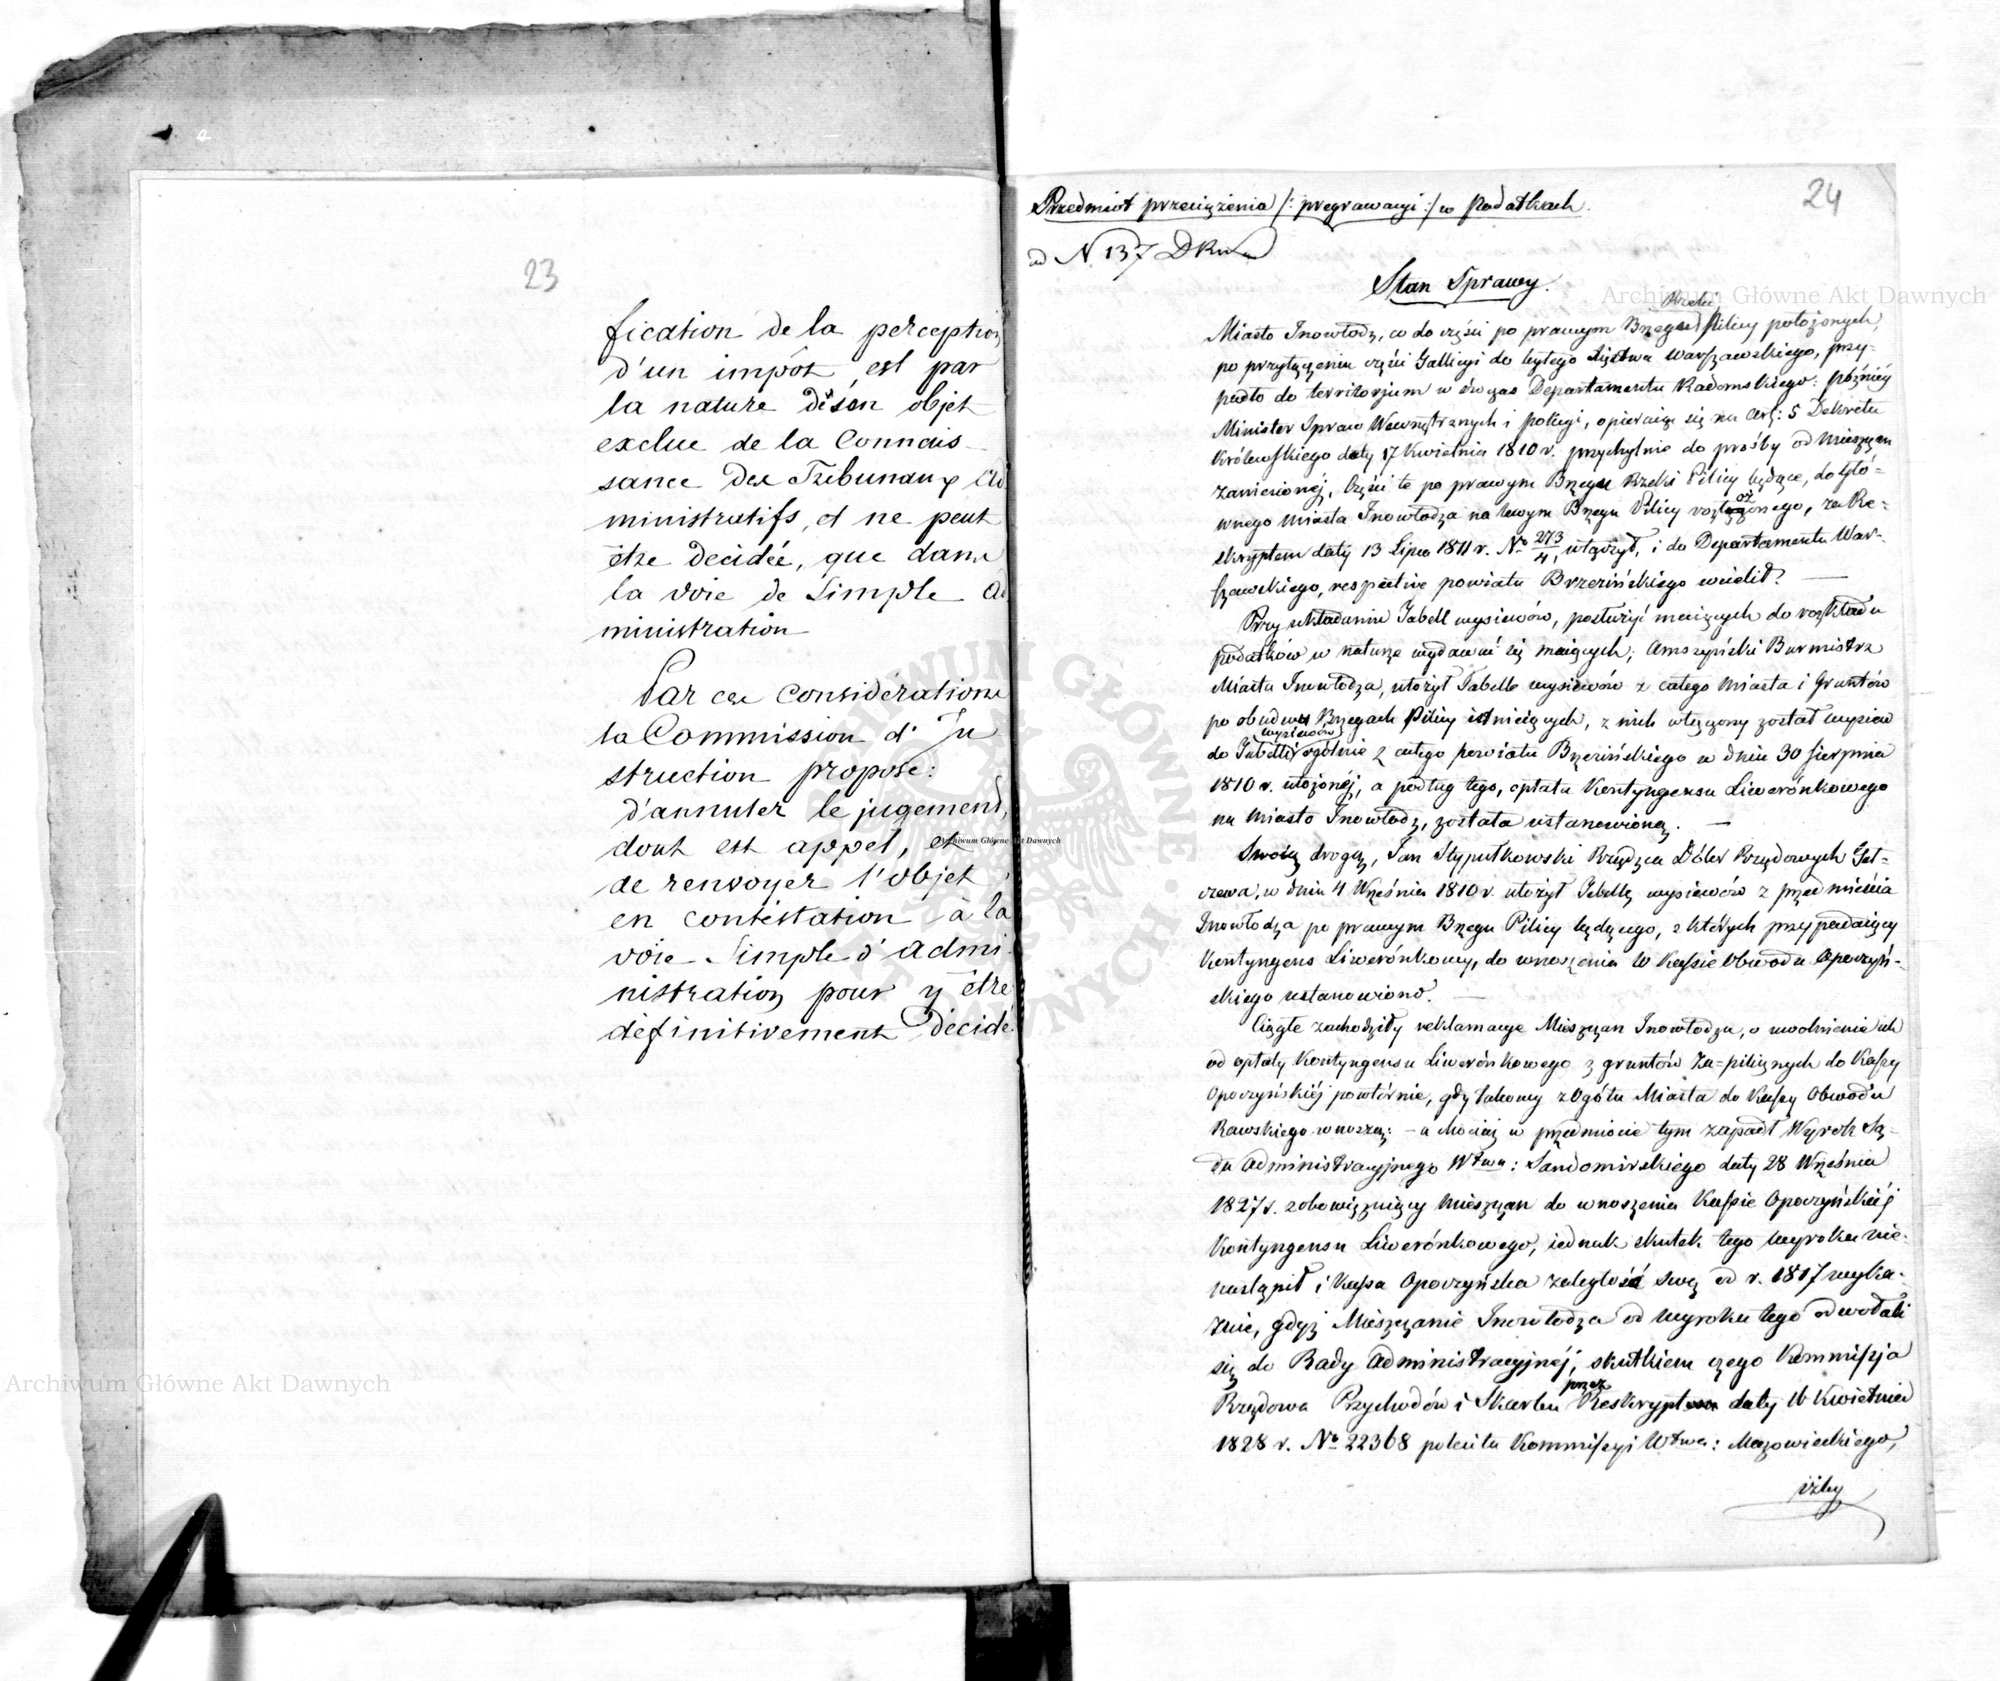 23
fication de la perception
d'un impôt est par
la nature de son objet
exclue de la Connais-
sance des Tribunaux Ad
ministratifs, et ne peut
être decidée, que dans
la voie de Simple Ad
ministration
Par ces considérations
la Commission d'In
struction propose:
d'annuler le jugement,
dont est appel, et
de renvoyer l'objet
en contestation à la
voie Simple d'Admi
nistration pour y être
définitivement décidé
24
Przedmiot przeciążenia /: pregrawacyi :/ w Podatkach.
ad N 137 DKw
Stan Sprawy.
Rzeki
Miasto Inowłodz, co do części po prawym Brzegu Pilicy położonych,
po przyłączeniu części Gallicyi do byłego Xięstwa Warszawskiego, przy-
padło do territorjum w ówczas Departamentu Radomskiego: później
Minister Spraw Wewnętrznych i Policyi, opieraiąc się na Art: 5 Dekretu
Królewskiego daty 17 Kwietnia 1810 r. przychylnie do prośby od Mieszczan
zaniesionéj, Części te po prawym Brzegu Rzeki Pilicy będące, do głó-
wnego Miasta Inowłodza na lewym Brzegu Pilicy położonego, za Re-
skryptem daty 13 Lipca 1811 r. No 273/4 włączył, i do Departamentu War-
szawskiego, respective powiatu Brzezińskiego wcielił. —
Przy układaniu Tabell wysiewów, posłużyć maiących do rozkładu
podatków w naturze wydawać się maiących; Amszyński Burmistrz
Miasta Inowłodza, ułożył Tabelle wysiewów z całego Miasta i Gruntów
po obudwu Brzegach Pilicy istnieiących, z nich włączony został wysiew
wysiewów
do Tabelli ogólnie z całego powiatu Brzezińskiego w dniu 30 Sierpnia
1810 r. ułożonéj, a podług tego, opłata Kontyngensu Liwerónkowego
na Miasto Inowłodz, została ustanowioną. —
Swoią drogą, Jan Stypułkowski Rządca Dóbr Rządowych Gat-
czewa, w dniu 4 Września 1810 r. ułożył Tabellę wysiewów z przedmieścia
Inowłodza po prawym Brzegu Pilicy będącego, z których przypadaiący
Kontyngens Liwerónkowy, do wnoszenia w Kassie Obwodu Opoczyń-
skiego ustanowiono. —
Ciągłe zachodziły reklamacye Mieszczan Inowłodza, o uwolnienie ich
od opłaty Kontyngensu Liwerónkowego z gruntów Za-pilicznych do Kassy
Opoczyńskiéj powtórnie, gdy takowy z Ogółu Miasta do Kassy Obwodu
Rawskiego wnoszą; — a chociaż w przedmiocie tym zapadł Wyrok Są-
du Administracyjnego Wtwa: Sandomirskiego daty 28 Września
1827 r. zobowiązuiący Mieszczan do wnoszenia Kassie Opoczyńskiéj
Kontyngensu Liwerónkowego, iednak skutek tego wyroku nie-
nastąpił i Kassa Opoczyńska zaległość swą od r. 1817 wyka-
zuie, gdyż Mieszczanie Inowłodza od wyroku tego odwołali
się do Rady Administracyjnéj, skutkiem czego Kommissja
przez
Rządowa Przychodów i Skarbu Reskrypt daty 16 Kwietnia
1828 r. No 22368 poleciła Kommissyi Wtwa: Mazowieckiego,
iżby
Archiwum Główne Akt Dawnych
Archiwum Główne Akt Dawnych
Archiwum Główne Akt Dawnych